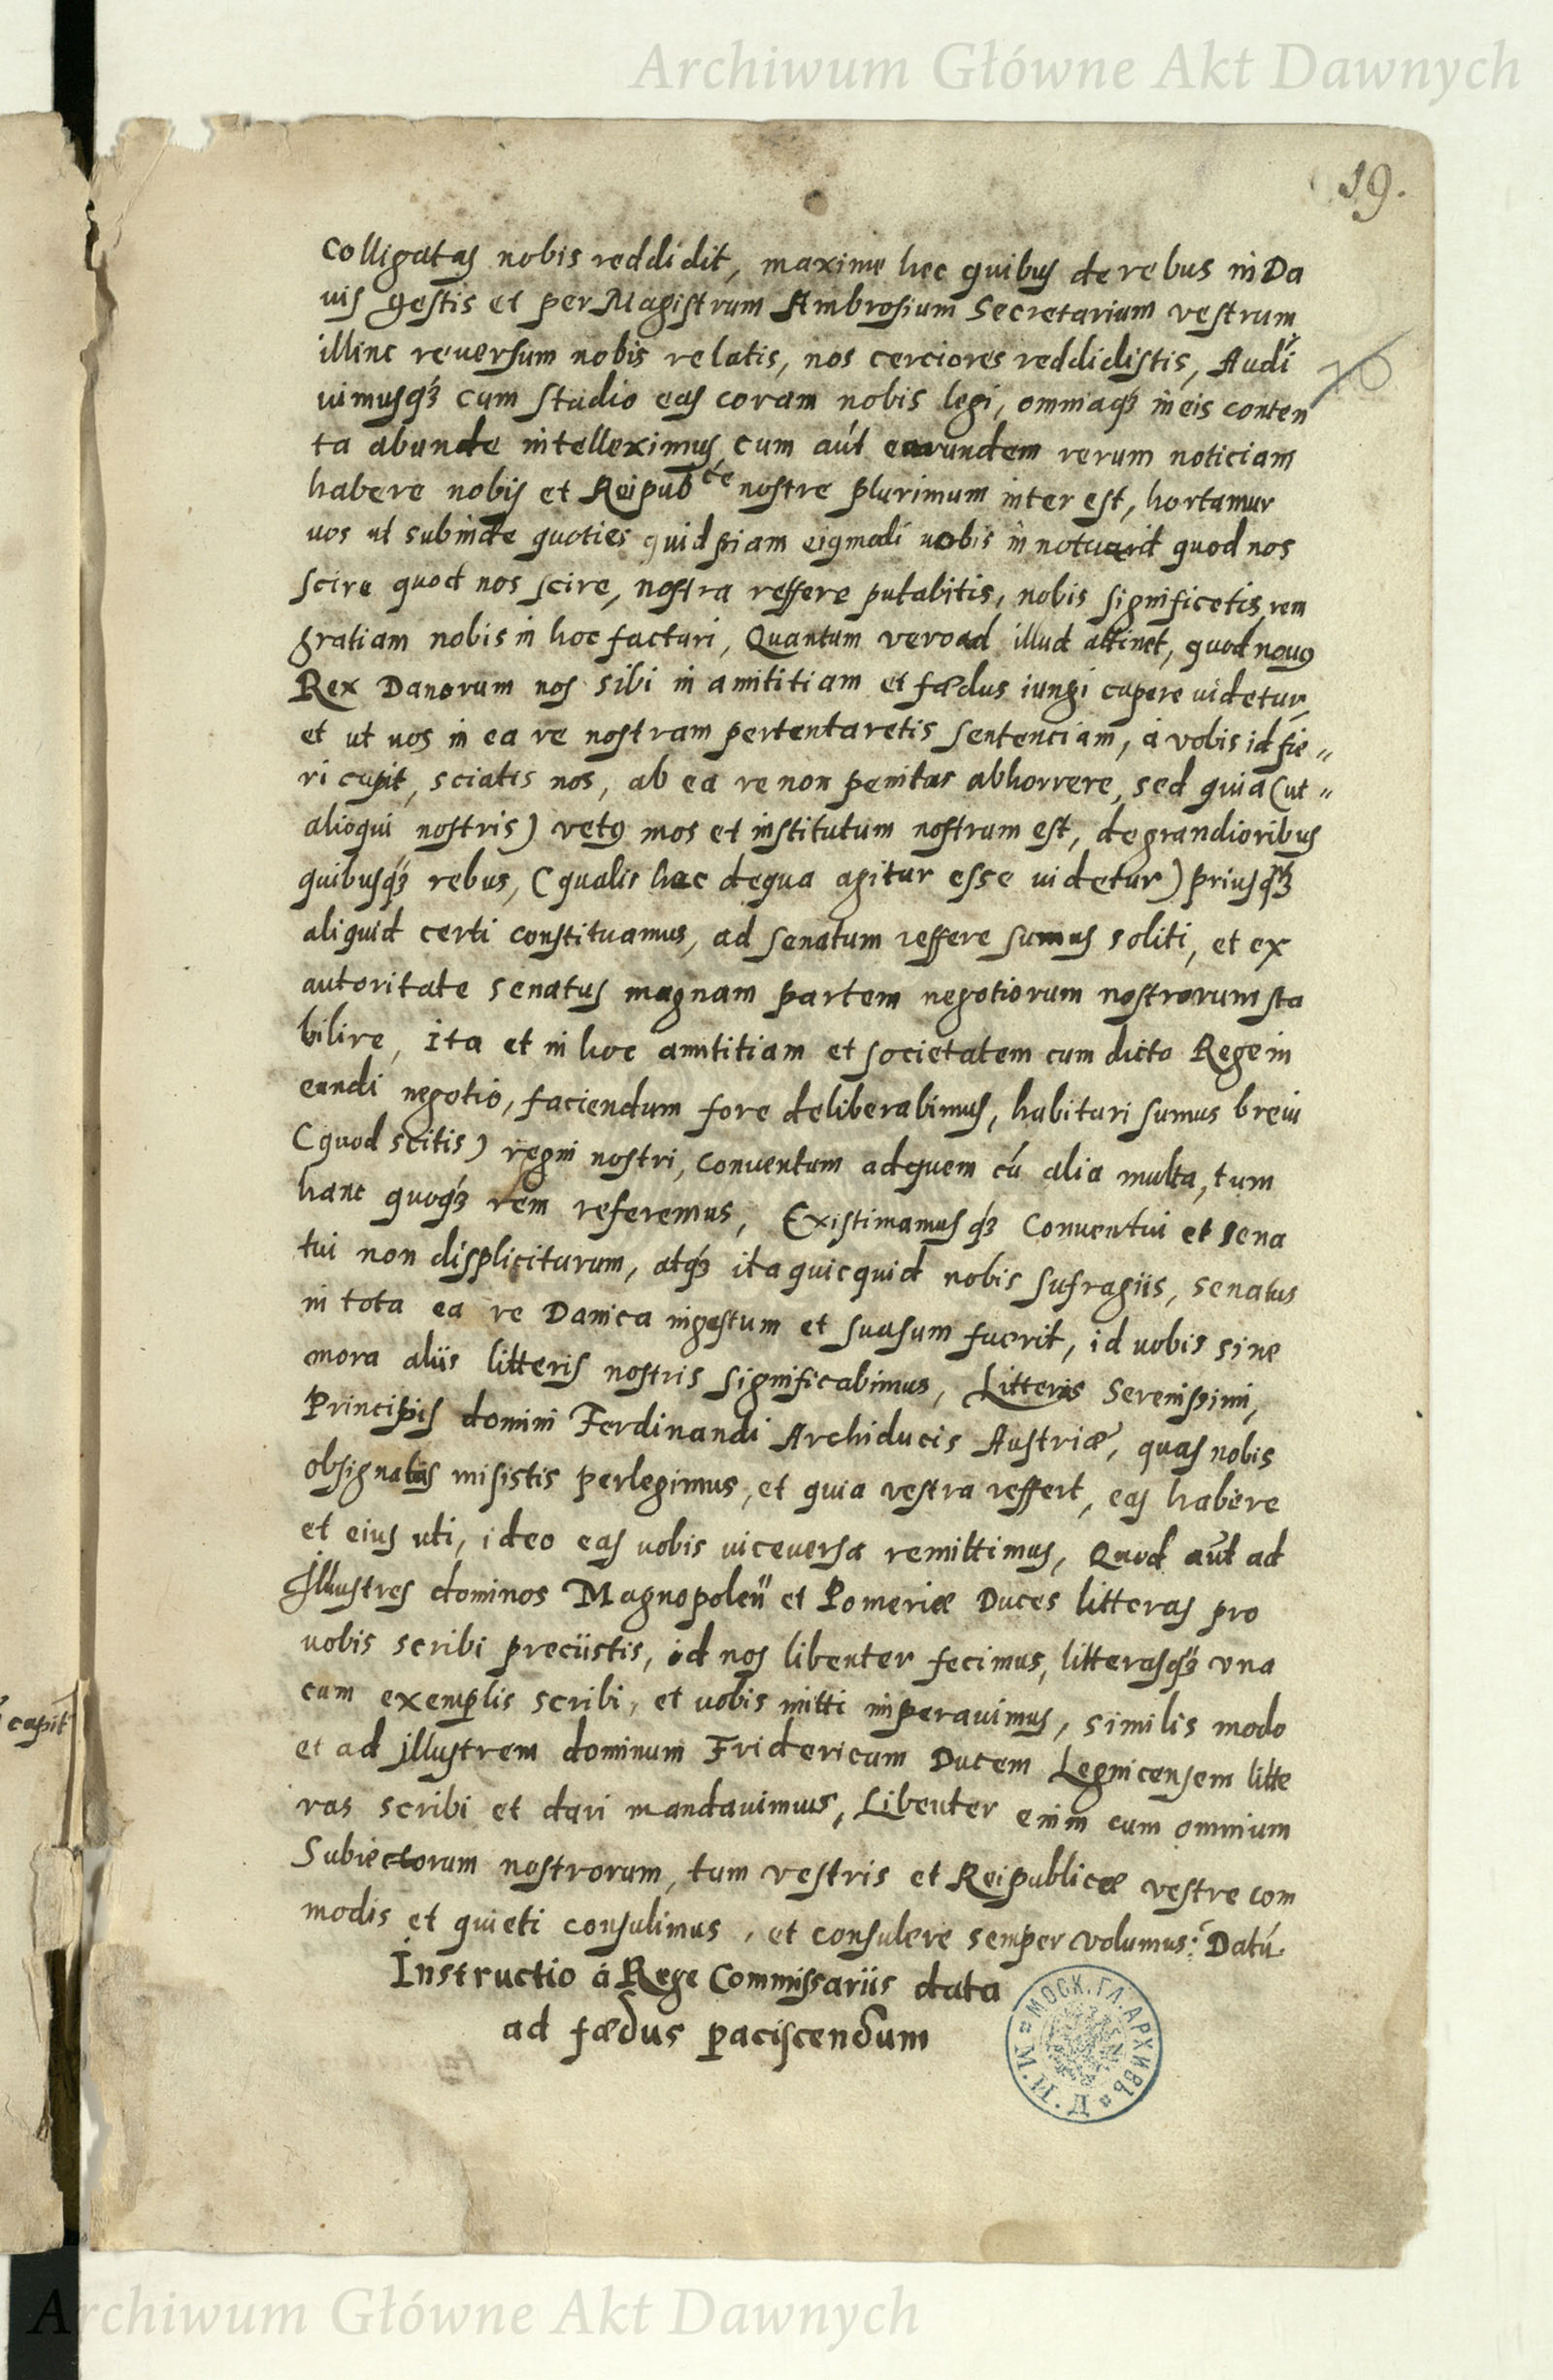 Archiwum Główne Akt Dawnych
19.
10
colligatas nobis reddidit, maxime hec quibus de rebus in Da
nis gestis et per Magistrum Ambrosium Secretarium vestrum
illinc reuersum nobis relatis, nos cerciores reddidistis, Audi
uimusq́ꝫ cum studio eas coram nobis legi, omniaq́ꝫ in eis conten
ta abunde intelleximus, cum aút earundem rerum noticiam
habere nobis et Reipub^ce nostre plurimum interest, hortamur
uos ut subinde quoties quidpiam eigmodi uobis innotuerit quod nos
scire quod nos scire, nostra reffere putabitis, nobis significetis rem
gratiam nobis in hoc facturi, Quantum vero ad illud attinet, quod nouꝯ
Rex Danorum nos sibi in amititiam et fædus iungi cupere uidetur,
et ut uos in ea re nostram pertentaretis sentenciam, á vobis id fie„
ri cupit, sciatis nos, ab ea re non penitus abhorrere, sed quia (ut„
alioqui nostris) vetꝯ mos et institutum nostrum est, de grandioribus
quibusq́ꝫ rebus, (qualis hæc de qua agitur esse uidetur) priusq́ꝫ
aliquid certi constituamus, ad senatum reffere sumus soliti, et ex
autoritate senatus magnam partem negotiorum nostrorum sta
bilire, ita et in hoc amititiam et societatem cum dicto Rege in
eundi negotio, faciendum fore deliberabimus, habituri sumus breui
(quod scitis) regni nostri, conuentum ad quem cú alia multa, tum
hanc quoq́ꝫ rem referemus, Existimamusq́ꝫ Conuentui et sena
tui non displiciturum, atq́ꝫ ita quicquid nobis sufragiis, senatus
in tota ea re Danica ingestum et suasum fuerit, id uobis sine
mora aliis litteris nostris significabimus, Litteras Serenissimi,
Principis domini Ferdinandi Archiducis Austriæ, quas nobis
obsignatas misistis perlegimus, et quia vestra reffert, eas habere
et eius uti, ideo eas uobis viceversa remittimus, Quod aút ad
Jllustres dominos Magnopoleń et Pomeriæ Duces litteras pro
uobis scribi preciistis, id nos libenter fecimus, litterasq́ꝫ vna
cum exemplis scribi, et uobis mitti imperauimus, similis modo
et ad jllustrem dominum Fridericum Ducem Legnicensem litte
ras scribi et dari mandauimus, Libenter enim cum omnium
Subiectorum nostrorum, tum vestris et Reipublicæ vestre com
modis et quieti consulimus, et consulere semper volumus: Datú
Instructio á Rege Commissariis data
ad fædus paciscendum
capit
МОСК. ГЛ. АРХИВЪ
М. И. Д.
Archiwum Główne Akt Dawnych